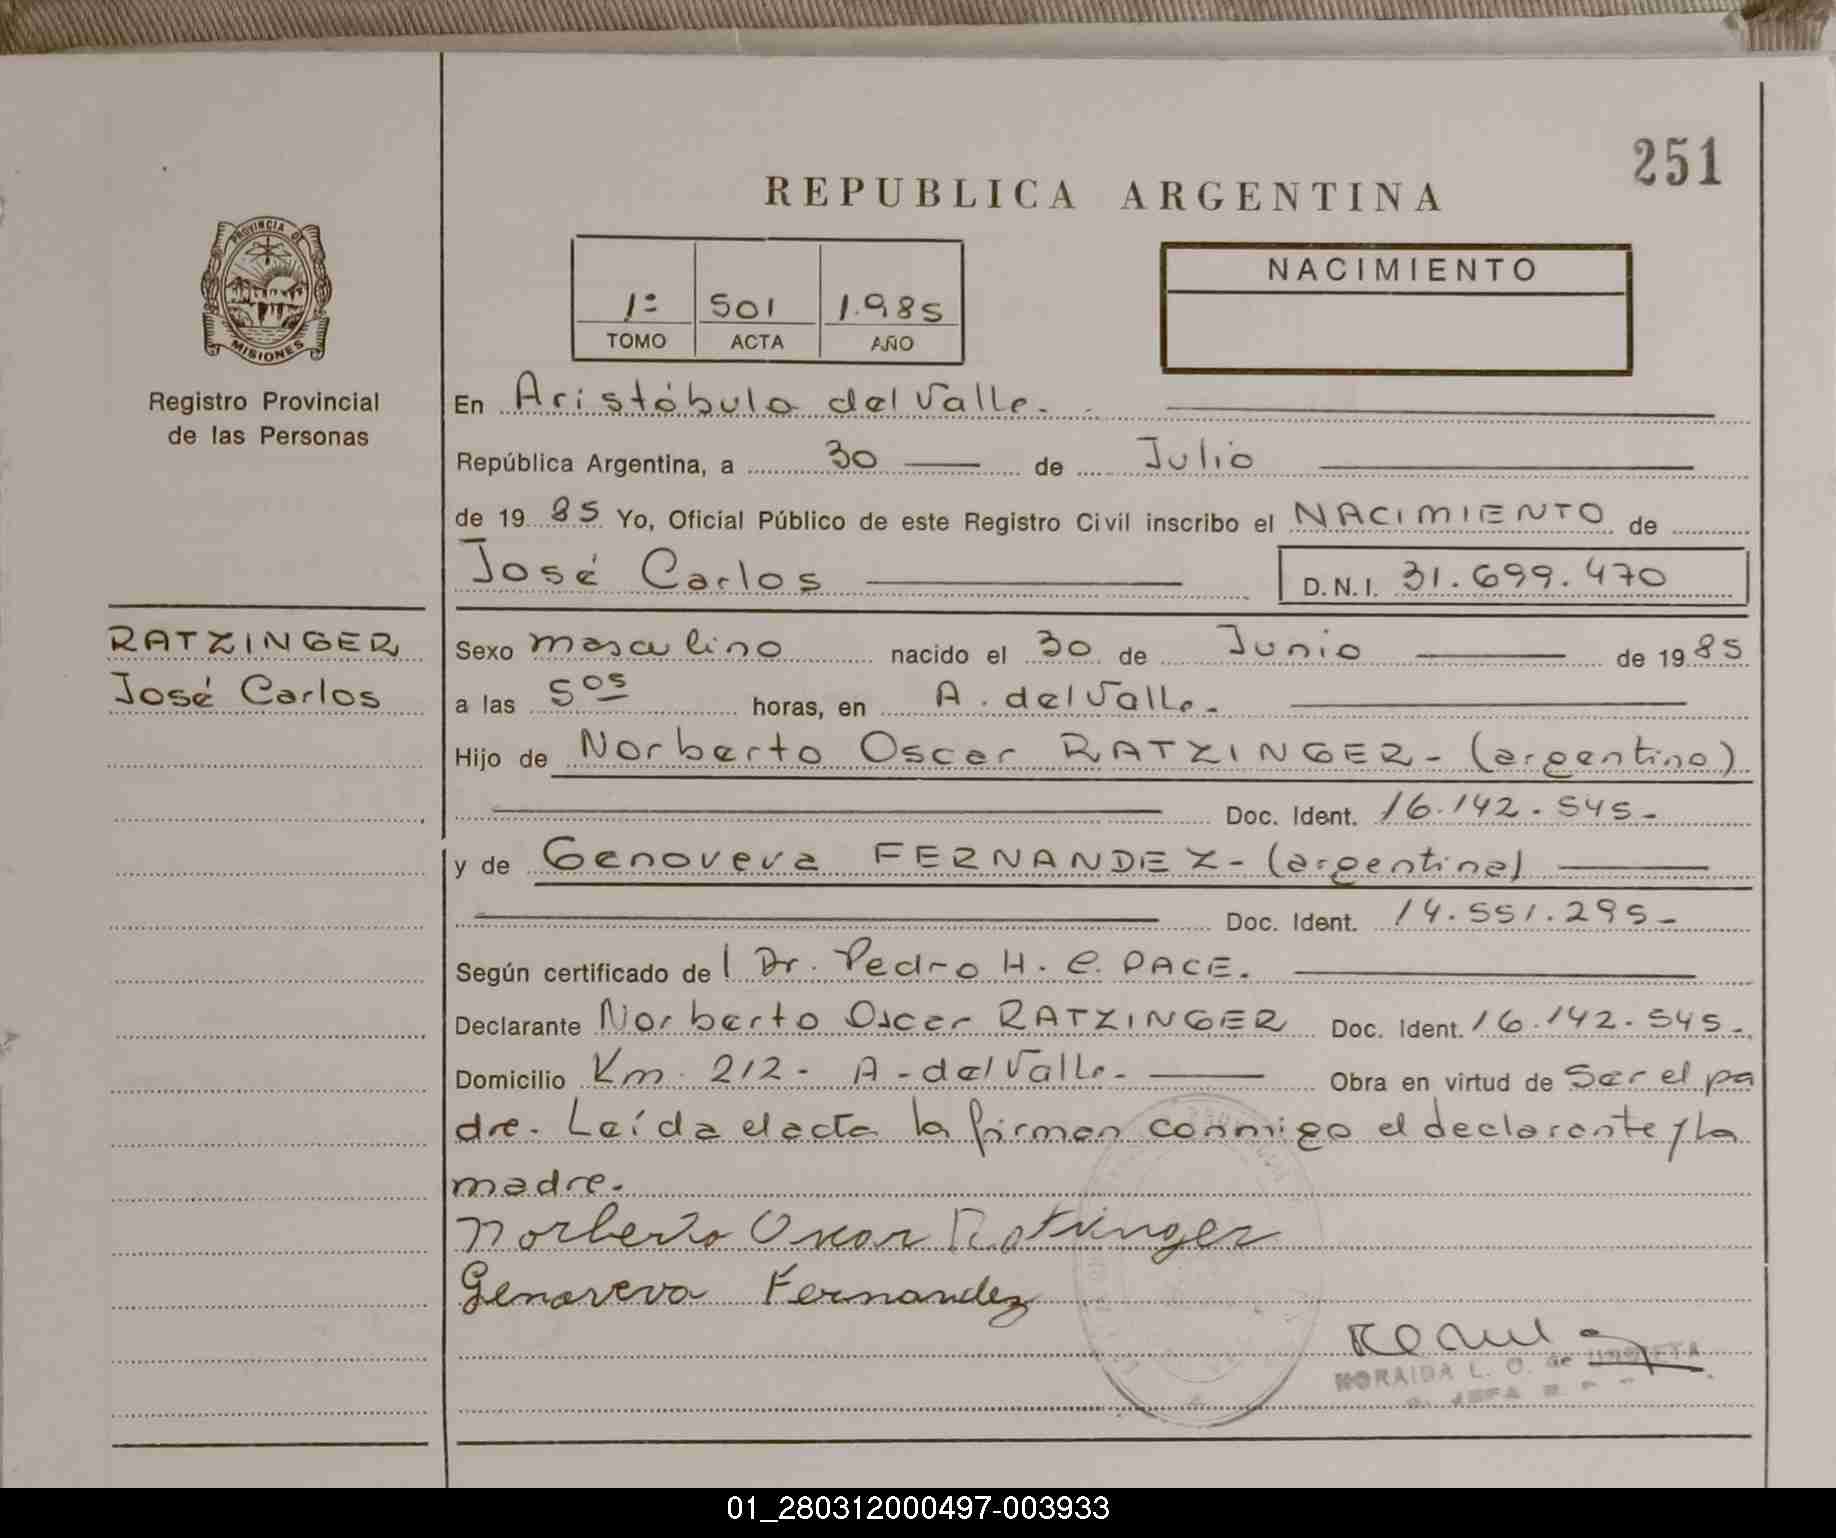 251
REPUBLICA ARGENTINA
PROVINCIA DE
MISIONES
Registro Provincial
de las Personas
1º 501 1.985
TOMO ACTA AÑO
NACIMIENTO
En Aristóbulo del Valle.
República Argentina, a 30 de Julio
de 19 85 Yo, Oficial Público de este Registro Civil inscribo el NACIMIENTO de
José Carlos D.N.I. 31.699.470
RATZINGER
José Carlos
Sexo masculino nacido el 30 de Junio de 19 85
a las 5 os horas, en A. del Valle.
Hijo de Norberto Oscar RATZINGER - (argentino)
Doc. Ident. 16.142.545-
y de Genoveva FERNANDEZ - (argentina)
Doc. Ident. 14.551.295-
Según certificado del Dr. Pedro H. C. PACE.
Declarante Norberto Oscar RATZINGER Doc. Ident. 16.142.545-
Domicilio Km 212 - A - del Valle - Obra en virtud de Ser el pa
dre. Leída el acta la firman conmigo el declarante y la
madre.
Norberto Oscar Ratzinger
Genoveva Fernandez
NORAIDA L. O. de
JEFA
01_280312000497-003933